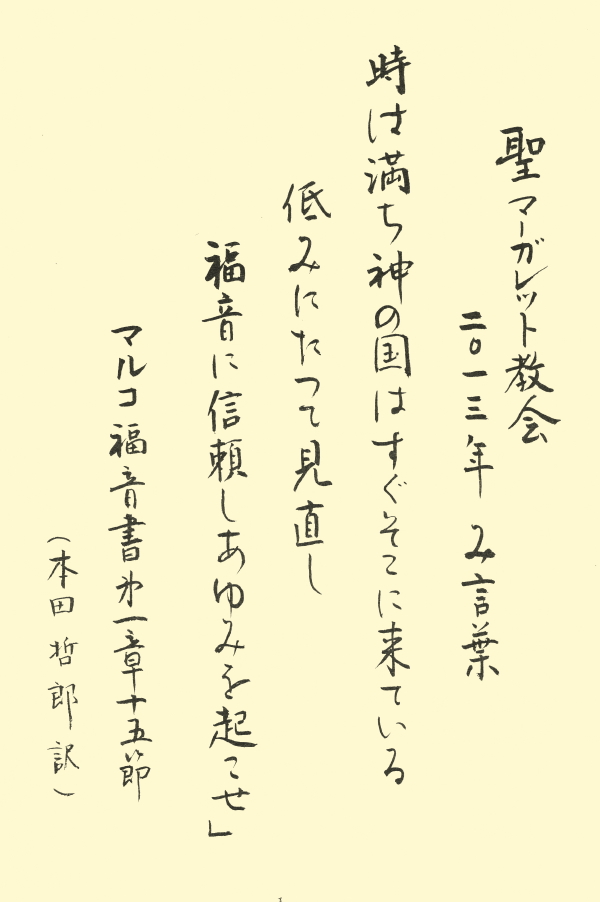 聖マーガレット教会
二〇一三年 み言葉
時は満ち神の国はすぐそこに来ている
低みにたって見直し
福音に信頼しあゆみを起こせ」
マルコ福音書㐧一章十五節
(本田哲郎訳)
1